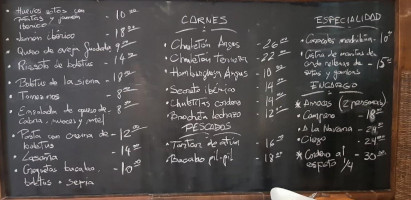 • Huevos rotos con
patatas y jamón
ibérico - 10.00
• Jamón ibérico - 18.00
• Queso de oveja - 9.00
• Risotto de boletus - 14.00
• Boletus de la sierra - 18.00
• Tomates - 8.00
• Ensalada de queso de
cabra, nueces y miel - 8.00
• Pasta con crema de
boletus - 12.00
• Lasaña - 14.00
• Croquetas bacalao
boletus - sepia - 10.00
CARNES
• Chuletón Angus - 26.00
• Chuletón Ternera - 22.00
• Hamburguesa Angus - 10.00
• Secreto ibérico - 14.00
• Chuletitas cordero - 14.00
• Brocheta lechazo - 12.00
PESCADOS
• Tartar de atún - 16.00
• Bacalao pil-pil - 18.00
ESPECIALIDAD
• Caracoles - 10.00
rellenas de
setas y gambas - 15.00
ENCARGO
* Arroces (2 personas)
• Campero - 18.00
• A la Navara
• Ciego - 24.00
* Cordero al
espeto 1/4 - 30.00